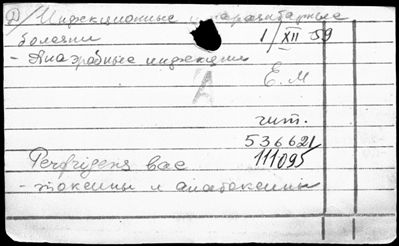 2) Инфекционные и паразитарные
болезни
1/XII 59
- Анаэробные инфекции
Е. М
A
чит.
536621/
111095
Perfrigens bac
- токсины и анатоксины